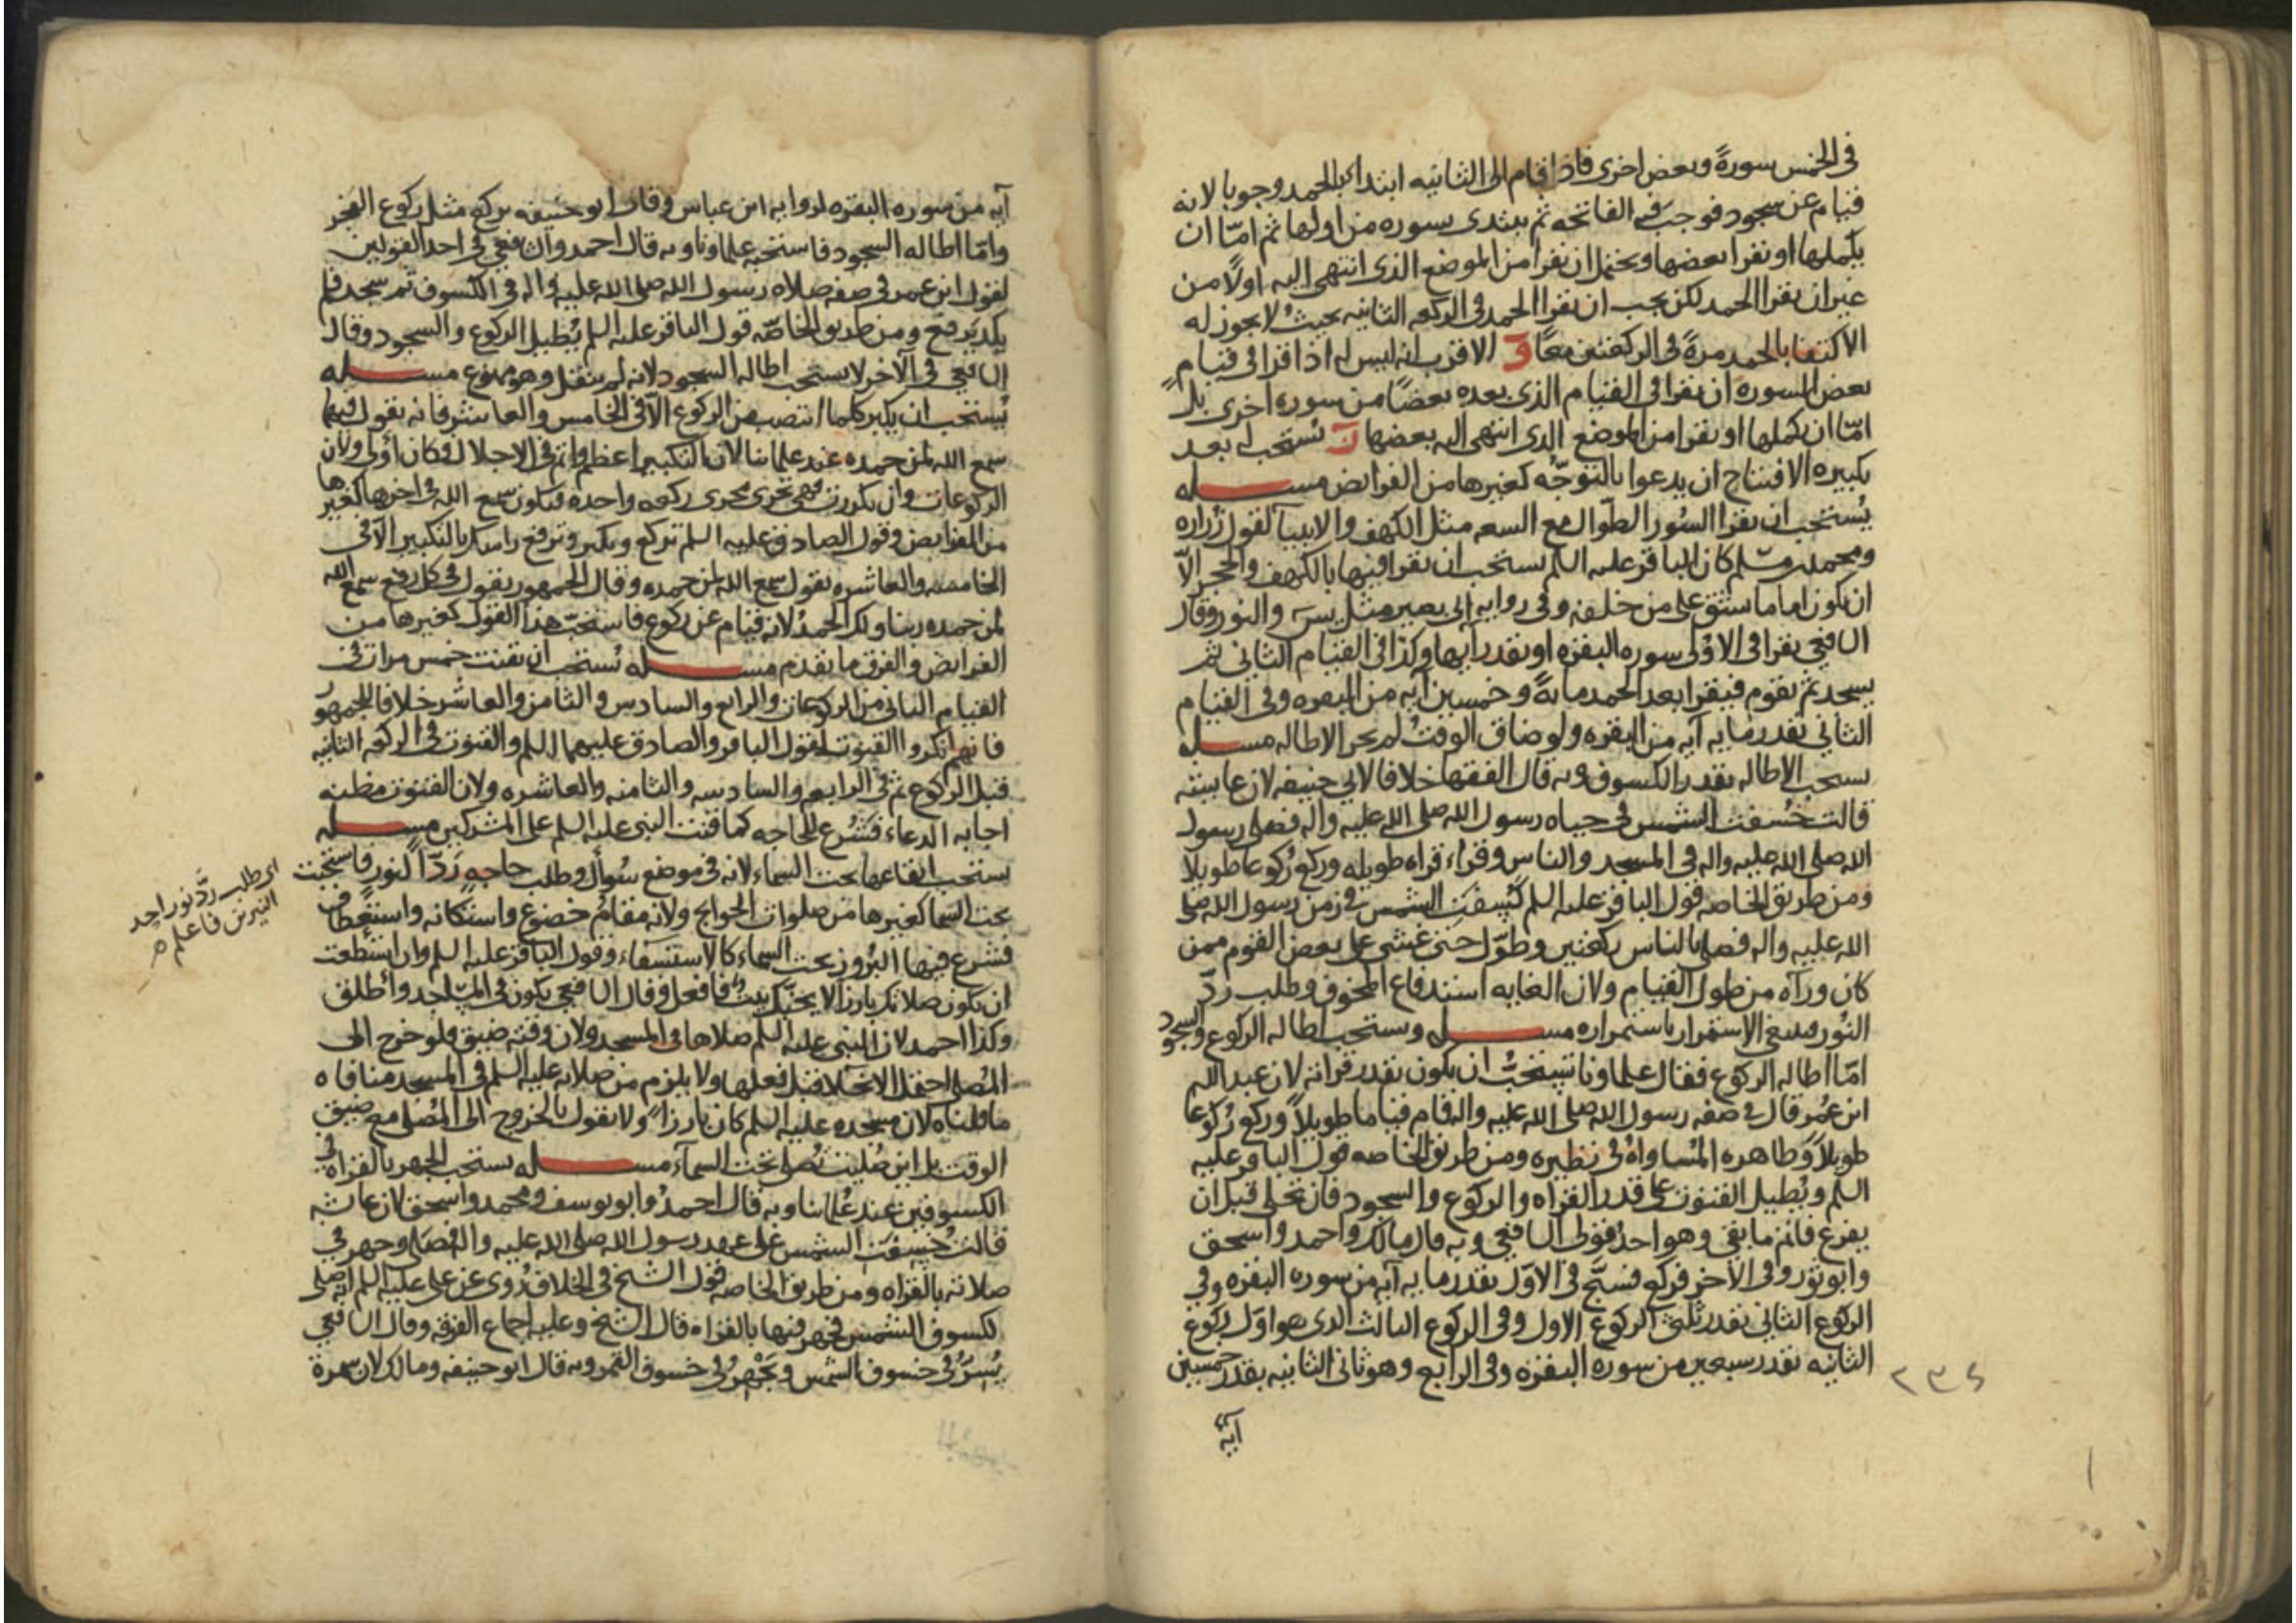 في الخمس سورةً وبعض اخرى فاذا قام الى الثانيه ابتداء بالحمد وجوبا لانه
قيام عن سجود فوجب فيه الفاتحه ثم يبتدى بسوره من اولها ثم امّا ان
يكملها او يقرا بعضها ويحتمل ان يقرا من الموضع الذى انتهى اليه اولًا من
غير ان يقرا الحمد لكن يجب ان يقرا الحمد فى الركعه الثانيه بحيثُ لا يجوز له
الاكتفا بالحمد مرةً فى الركعتين معًا وَ الاقرب انه ليس له اذا قرا فى قيام
بعض السوره ان يقرا فى القيام الذى بعده بعضًا من سوره اخرى بل
امّا ان يكملها او يقرا من الموضع الذى انتهى اليه بعضها زَ يستحب له بعد
تكبيره الافتتاح ان يدعوا بالتوجّه كغيرها من الفرايض مسـله
يُستحب ان يقرا السُور الطوال مع السعه مثل الكهف والانبيآ لقول زُراره
ومحمد بن مسّلم كان الباقر عليه السلم يستحب ان يقرا فيها بالكهف والحجر الّا
ان يكون اماما يشق على من خلفه وفى روايه ابى بصير مثل يسَ والنور وقال
الشافعي يقرا فى الاوُلى سوره البقره او بقدر آيها وكذا فى القيام الثانى ثم
يسجد ثم يقوم فيقرا بعد الحمد مايةً وخمسين آيه من البقره وفى القيام
الثانى بقدر مايه آيه من البقره ولو ضاق الوقتُ لم يجز الاطاله مسـله
يستحب الاطاله بقدر الكسوف وبه قال الفقها خلافا لابي حنيفه لان عايشه
قالت خُسفت الشمس فى حياه رسول الله صلى الله عليه واله فصلى رسول
الله صلى الله عليه واله فى المسجد والناس وقراء قراه طويله وركع رُكوعا طويلا
ومن طريق الخاصه قول الباقر عليه السلم كُسِفَت الشمس فى زمن رسول الله صلى
الله عليه واله فصلى بالناس ركعتين وطوّل حتى غشى على بعض القوم ممن
كان ورآه من طول القيام ولان الغايه استدفاع المخوف وطلب ردّ
النُور فينبغى الاستمرار باستمراره مسـله ويستحب اطاله الركوع والسجود
امّا اطاله الركوع فقال علماونا يستحبُ ان يكون بقدر قراته لان عبد الله
ابن عُمر قال فى صفه رسول الله صلى الله عليه واله قام قياما طويلاً وركع رُكوعا
طويلاً وظاهره المُساواهُ فى نظيره ومن طريق الخاصه قول الباقر عليه
السلم ويُطيل القنوت على قدر القراه والركوع والسجود فان تجلى قبل ان
يفرغ فاتم ما بقى وهو احدُ قولى الشافعي وبه قال مالك واحمد واسحق
وابو ثور وفى الآخر فركع فسبّح فى الاوّل بقدر مايه آيه من سوره البقره وفى
الركوع الثانى بقدر ثلثى الركوع الاول وفى الركوع الثالث الذى هو اوّل ركوع
الثانيه بقدر سبعين من سوره البقره وفى الرابع وهو ثانى الثانيه بقدر خمسين
آيه
آيه من سوره البقره لروايه ابن عباس وقال ابو حنيفه يركع مثل ركوع الفجر
وامّا اطاله السجود فاستحبه علماونا وبه قال احمد والشافعي فى احد القولين
لقول ابن عمر فى صفه صلاه رسول الله صلى الله عليه واله فى الكسوف ثم سجد فلم
يكد يرفع ومن طريق الخاصّه قول الباقر عليه السلم يُطيل الركوع والسجود وقال
الشافعي فى الآخر لا يستحب اطاله السجود لانه لم ينقل وهو ممنوع مسـله
يُستحب ان يكبر كلما انتصب من الركوع الّا فى الخامس والعاشر فانه يقول فيهما
سمع الله لمن حمده عند علماينا لان التكبير اعظم واتم فى الاجلال فكان اوُلى ولان
الركوعات وان تكررت فهى تجرى مجرى ركعه واحده فيكون سمع الله فى اخرها كغيرها
من الفرايض وقول الصادق عليه السلم تركع وتكبر وترفع راسك بالتكبير الّا فى
الخامسه والعاشره يقول سمع الله لمن حمده وقال الجمهور يقول فى كل رفع سمع الله
لمن حمده ربنا ولك الحمدُ لانه قيام عن ركوع فاستحبّ هذا القول كغيرها من
الفرايض والفرق ما تقدم مسـله يُستحب ان يقنت خمس مرات فى
القيام الثانى من الركوعات والرابع والسادس والثامن والعاشر خلافا للجمهور
فانهم انكروا القنوت لقول الباقر والصادق عليهما السلم والقنوت فى الركعه الثانيه
قبل الركوع ثم فى الرابعه والسادسه والثامنه والعاشره ولان القنوت مظنه
اجابه الدعاء فشُرع للحاجه كما قنت النبى عليه السلم على المشركين مسـله
يستحب ايقاعها تحت السماء لانه فى موضع سُوأل وطلب حاجه رَدّ النور فاستحبت
تحت السما كغيرها من صلوات الحوايج ولانه مقامُ خضوع واستكانه واستعطاف
فشرع فيها البُروز تحت السماء كالاستسقاء وقول الباقر عليه السلم وان استطعت
ان يكون صلاتك بارزا لا يجنّك بيتٌ فافعل وقال الشافعي يكون فى المساجد وأطلق
وكذا احمد لان النبى عليه السلم صلاها فى المسجد ولان وقته ضيق فلو خرج الى
المُصلى احتمل الانجلا قبل فعلها ولا يلزم من صلاته عليه السلم فى المسجد منافاه
ما قلناه لان مسجده عليه السلم كان بارزاً ولا نقول بالخروج الى المُصلى مع ضيق
الوقت بل اين صُليت تُصلى تحت السمآء مسـله يستحب الجهر بالقراه فى
الكسوفين عند عُلماينا وبه قال احمدُ وابو يوسف ومحمد واسحق لان عايشه
قالت خُسِفَت الشمس على عهد رسول الله صلى الله عليه واله فصَلى وجهر فى
صلاته بالقراه ومن طريق الخاصه قول الشيخ فى الخلاف رُوى عن على عليه السلم انه صلى
لكسوف الشمس فجهر فيها بالقراه قال الشيخ وعليه اجماع الفرقه وقال الشافعي
يُسِرُّ فى خسوف الشمس ويَجْهر فى خسوف القمر وبه قال ابو حنيفه ومالك لان سمرة
اى طلب ردّ نور احد
النيرين فاعلم
٢٣٤